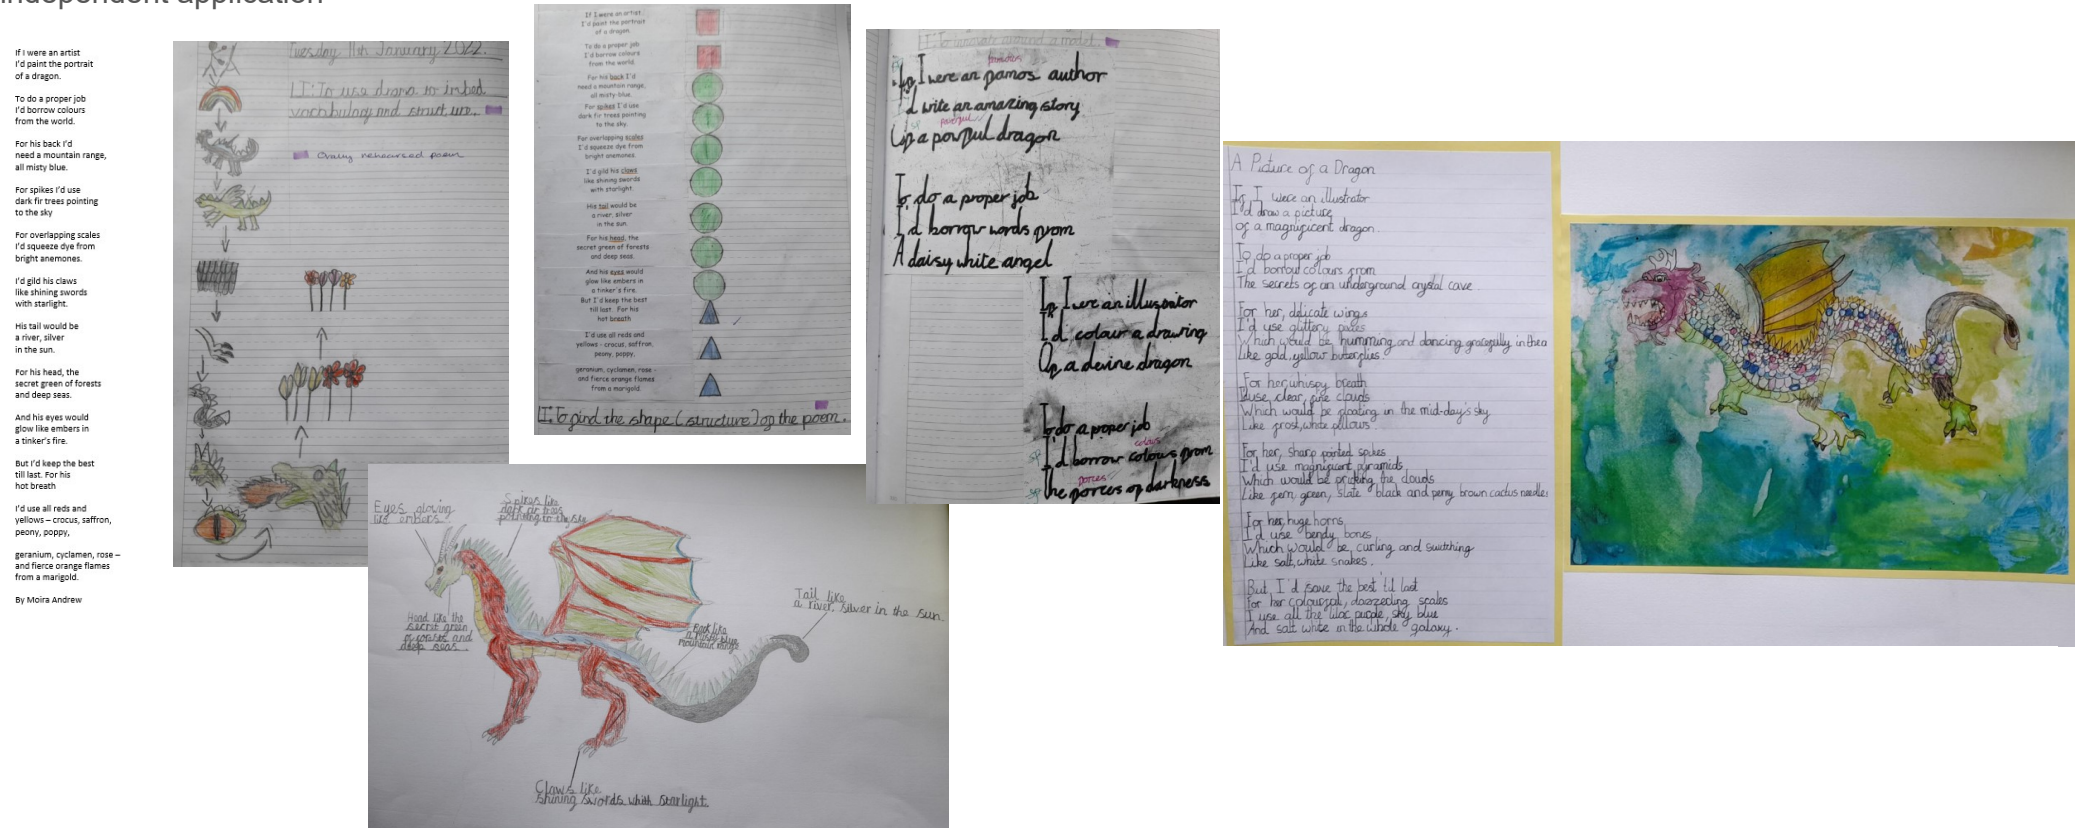 independent application
If I were an artist
I'd paint the portrait
of a dragon.
To do a proper job
I'd borrow colours
from the world.
For his back I'd
need a mountain range,
all misty blue.
For spikes I'd use
dark fir trees pointing
to the sky
For overlapping scales
I'd squeeze dye from
bright anemones.
I'd gild his claws
like shining swords
with starlight.
His tail would be
a river, silver
in the sun.
For his head, the
secret green of forests
and deep seas.
And his eyes would
glow like embers in
a tinker's fire.
But I'd keep the best
till last. For his
hot breath
I'd use all reds and
yellows – crocus, saffron,
peony, poppy,
geranium, cyclamen, rose –
and fierce orange flames
from a marigold.
By Moira Andrew
Tuesday 11th January 2022.
LI: To use drama to imbed
vocabulary and structure.
Orally rehearsed poem
If I were an artist
I'd paint the portrait
of a dragon.
To do a proper job
I'd borrow colours
from the world.
For his back I'd
need a mountain range,
all misty-blue.
For spikes I'd use
dark fir trees pointing
to the sky.
For overlapping scales
I'd squeeze dye from
bright anemones.
I'd gild his claws
like shining swords
with starlight.
His tail would be
a river, silver
in the sun.
For his head, the
secret green of forests
and deep seas.
And his eyes would
glow like embers in
a tinker's fire.
But I'd keep the best
till last. For his
hot breath
I'd use all reds and
yellows - crocus, saffron,
peony, poppy,
geranium, cyclamen, rose -
and fierce orange flames
from a marigold.
LI: To find the shape (structure) of the poem.
Eyes glowing
like embers.
Spikes like
dark fir trees
pointing to the sky
Head like the
secret green
of forests and
deep seas.
Back like
a misty blue
mountain range
Tail like
a river, silver in the sun.
Claws like
shining swords with starlight.
LI: To innovate around a model.
famous
If I were an famos author
I'd write an amazing story
Of a powful dragon
To do a proper job
I'd borrow words from
A daisy white angel
If I were an illustrator
I'd colour a drawing
Of a devine dragon
To do a proper job
colours
sp I'd borrow colous from
forces
sp the forces of darkness
A Picture of a Dragon
If I were an illustrator
I'd draw a picture
of a magnificent dragon.
To do a proper job
I'd borrow colours from
The secrets of an underground crystal cave
For her, delicate wings
I'd use glittery
Which would be humming and dancing gracefully in the
Like gold, yellow butterflies.
For her whispy breath
I'd use, clear, fine clouds
Which would be floating in the mid-day's sky
Like frost, white pillows
For her, sharp pointed spikes
I'd use magnificent pyramids
Which would be pricking the clouds
Like fern green, slate black and penny brown cactus needles
For her, huge horns
I'd use bendy bones
Which would be curling and switching
Like salt, white snakes.
But I'd save the best 'til last
For her colourful, dazzeling scales
I use all the lilac purple, sky blue
And salt white in the whole galaxy.